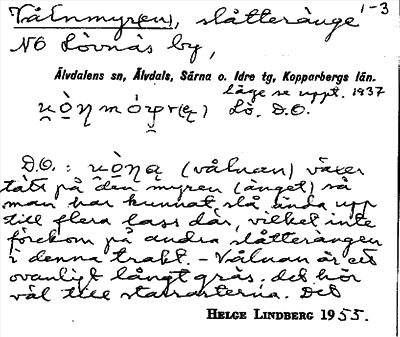 Vålnmyren, slåtteränge 1-3
NO Lövnäs by,
Älvdalens sn, Älvdals, Särna o. Idre tg, Kopparbergs län.
läge se uppt. 1937
Lö. D.O.
D.O.: (vålnan) växer
tätt på den myren (änget) så
man har kunnat slå ända upp
till flera lass där, vilket inte
förekom på andra slåtterängen
i denna trakt. - Vålnan är ett
ovanligt långt gräs, det hör
väl till starrarterna. Det
HELGE LINDBERG 1955.